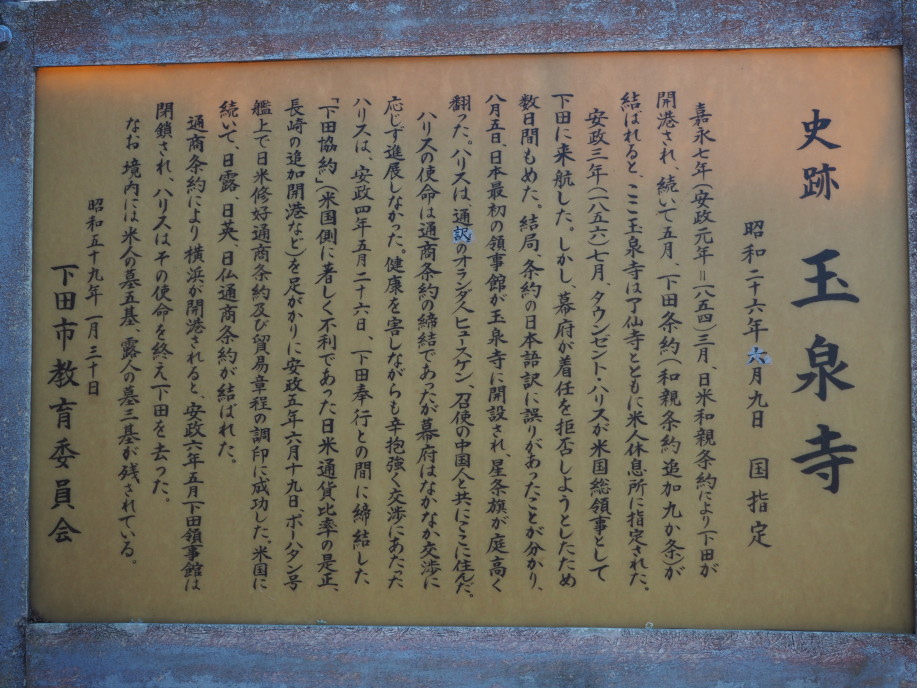 史跡　玉泉寺
昭和二十六年六月九日　国指定
嘉永七年(安政元年＝一八五四)三月、日米和親条約により下田が
開港され、続いて五月、下田条約(和親条約追加九か条)が
結ばれると、ここ玉泉寺は了仙寺とともに米人休息所に指定された。
安政三年(一八五六)七月、タウンゼント・ハリスが米国総領事として
下田に来航した。しかし、幕府が着任を拒否しようとしたため
数日間もめた。結局、条約の日本語訳に誤りがあったことが分かり、
八月五日、日本最初の領事館が玉泉寺に開設され、星条旗が庭高く
翻った。ハリスは、通訳のオランダ人ヒュースケン、召使の中国人と共にここに住んだ。
ハリスの使命は通商条約の締結であったが幕府はなかなか交渉に
応じず進展しなかった。健康を害しながらも辛抱強く交渉にあたった
ハリスは、安政四年五月二十六日、下田奉行との間に締結した
「下田協約」(米国側に著しく不利であった日米通貨比率の是正、
長崎の追加開港など)を足がかりに安政五年六月十九日、ポーハタン号
艦上で日米修好通商条約及び貿易章程の調印に成功した。米国に
続いて、日露、日英、日仏通商条約が結ばれた。
通商条約により横浜が開港されると、安政六年五月下田領事館は
閉鎖され、ハリスはその使命を終え下田を去った。
なお、境内には米人の墓五基、露人の墓三基が残されている。
昭和五十九年一月三十日
下田市教育委員会